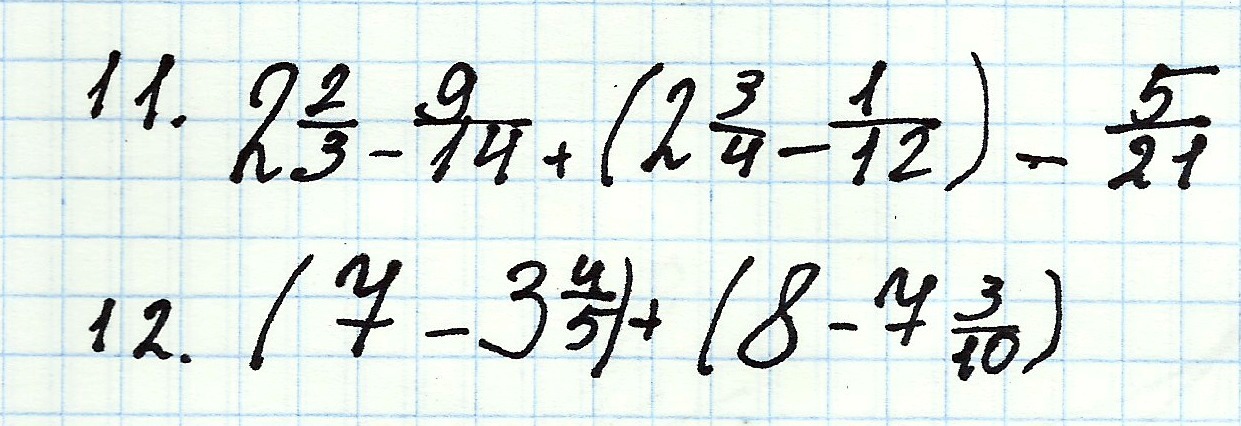 11. 2 2/3 - 9/14 + (2 3/4 - 1/12) - 5/21
12. (7 - 3 4/5) + (8 - 7 3/10)